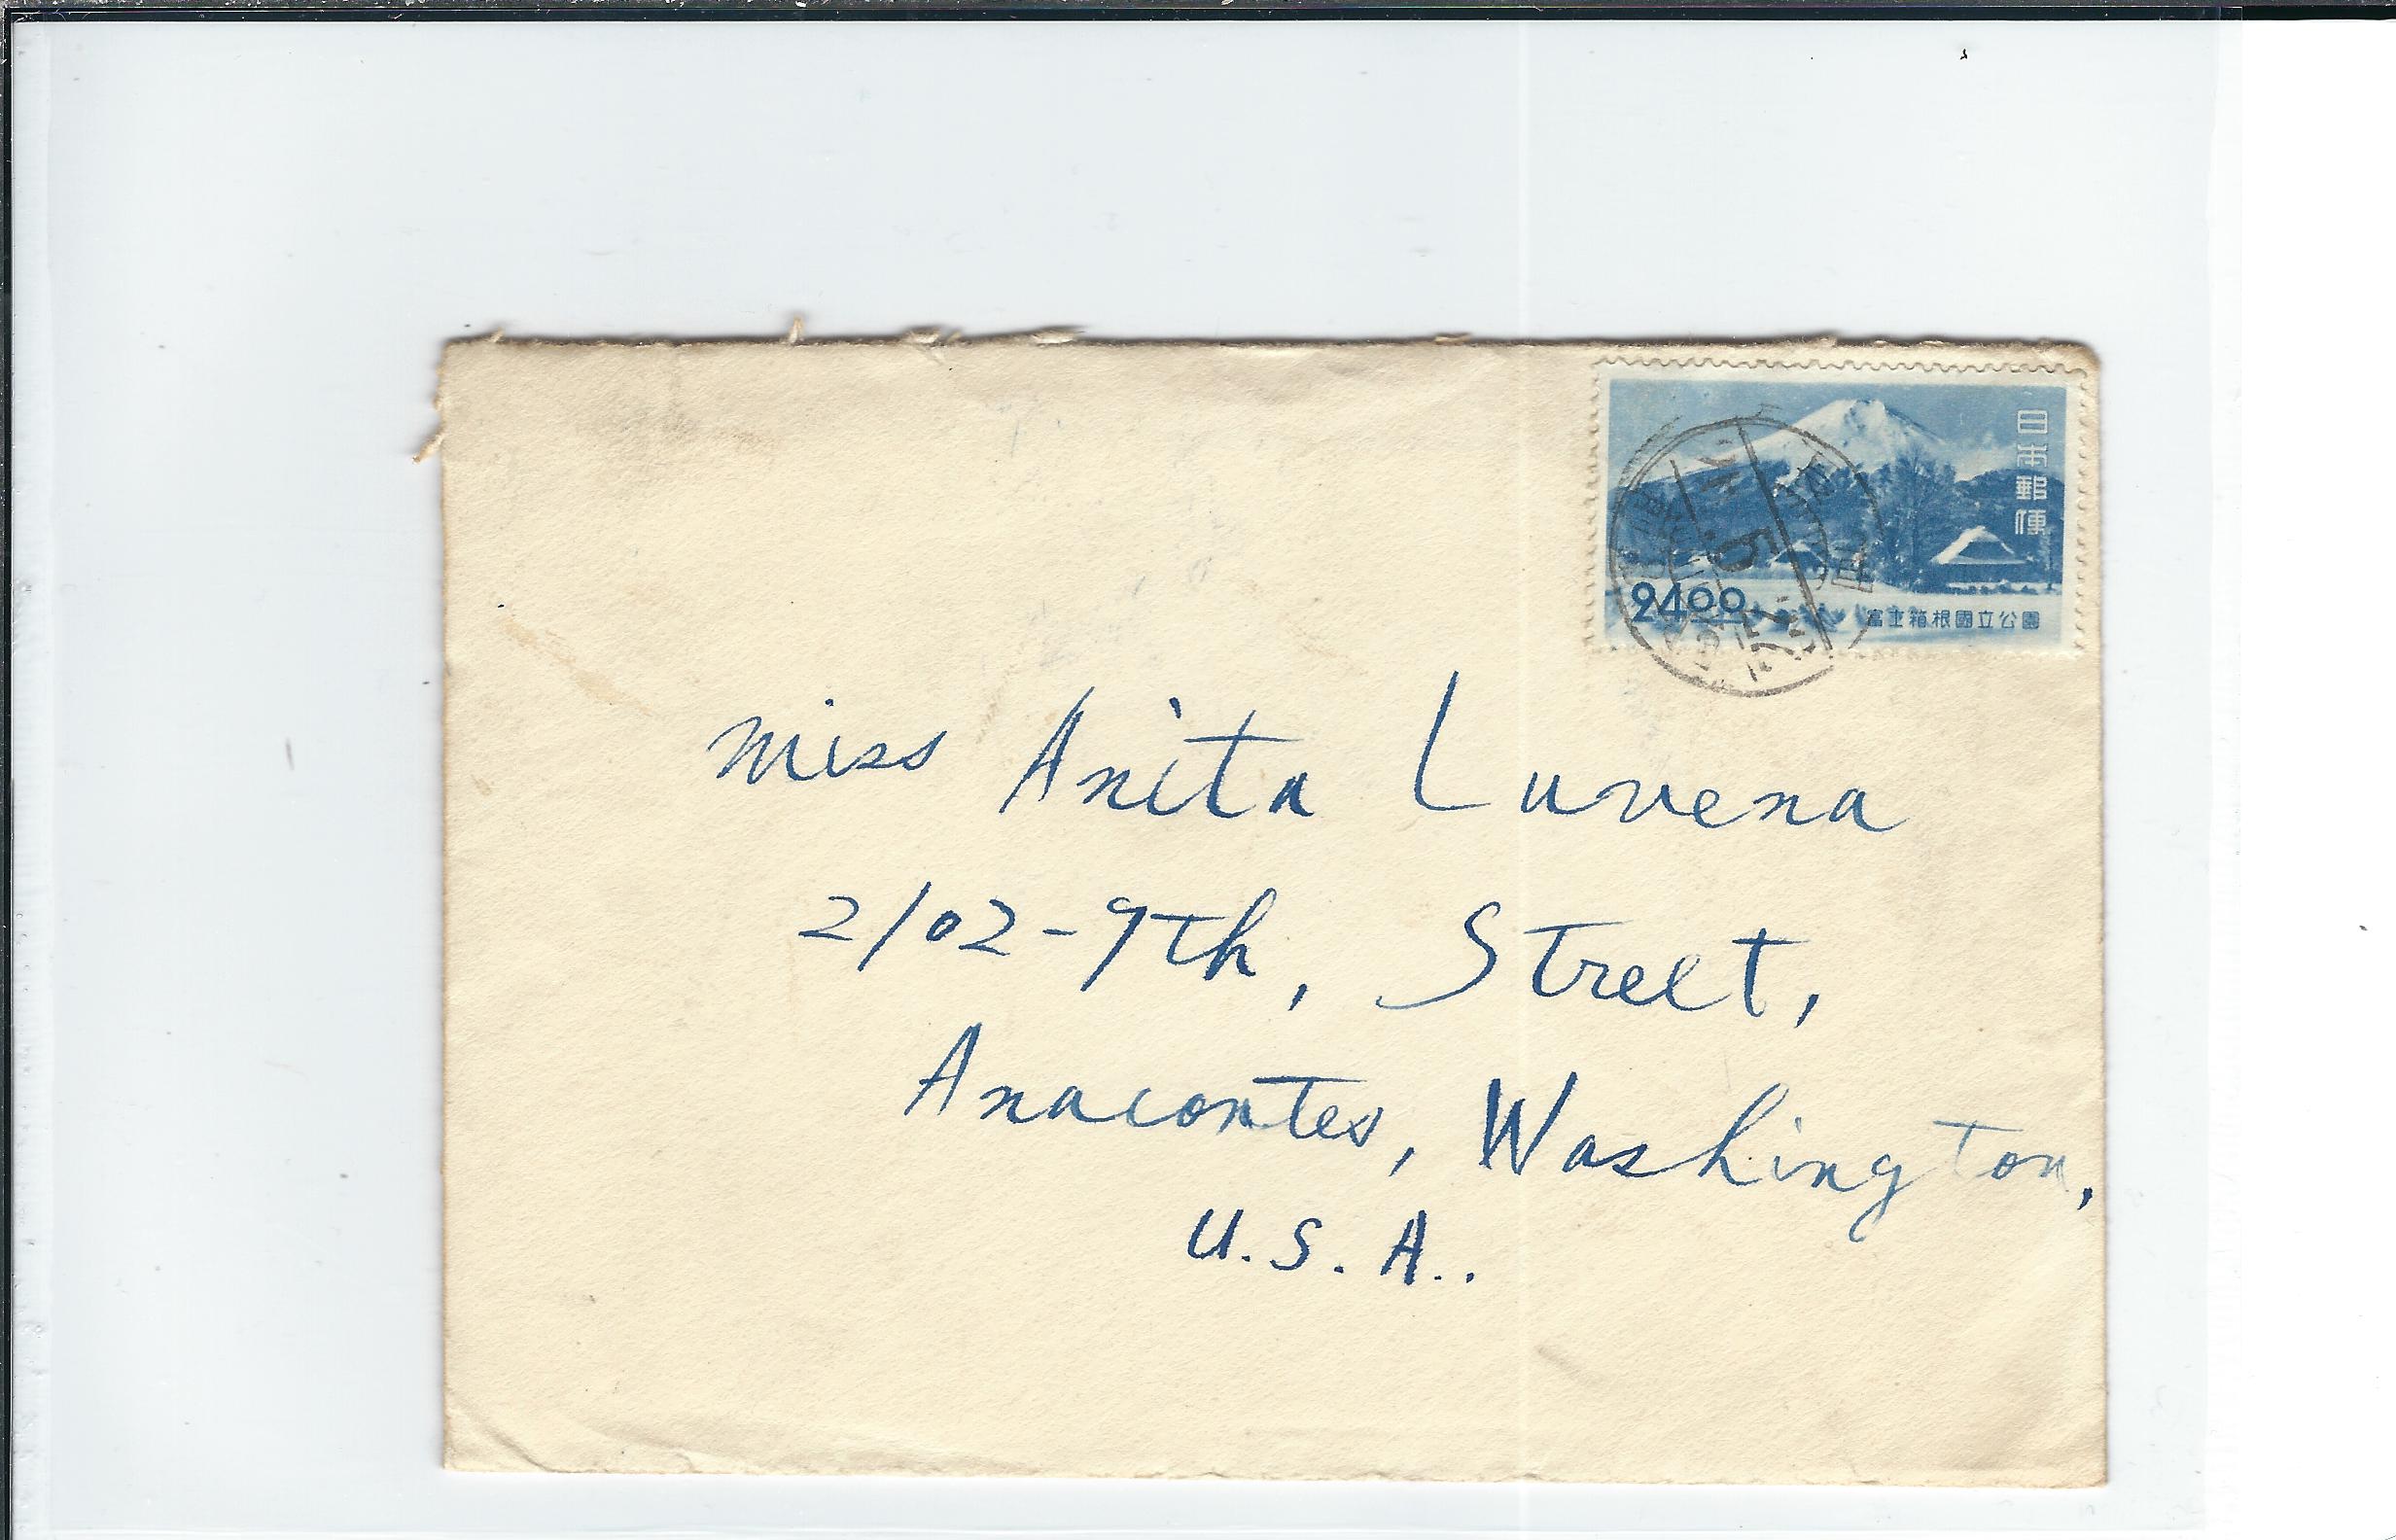 日本郵便
2400
富士箱根國立公園
Miss Anita Luvena
2102-9th, Street,
Anacontes, Washington,
U.S.A..